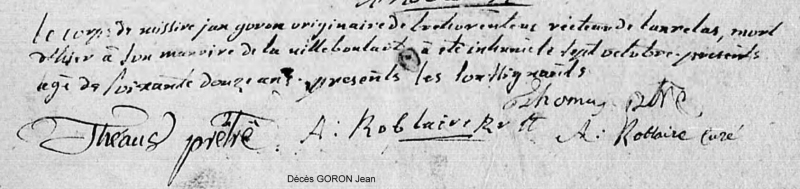 le corps de missire jan goron originaire de trehorenteuc recteur de lanrelas, mort
d'hier à son manoire de la villeboulart, à été inhumé le sept octobre presents
agé de soixante douze ans presents les soussignants
Thomas ptre
Theaud prêtre A: Roblaire A: Roblaire curé
Décès GORON Jean